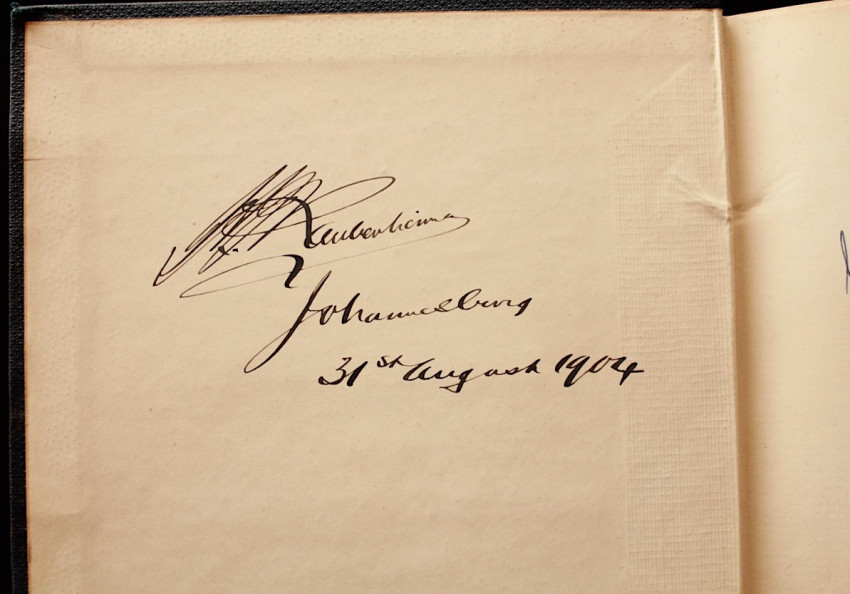 Raubenheimer
Johannesburg
31st August 1904